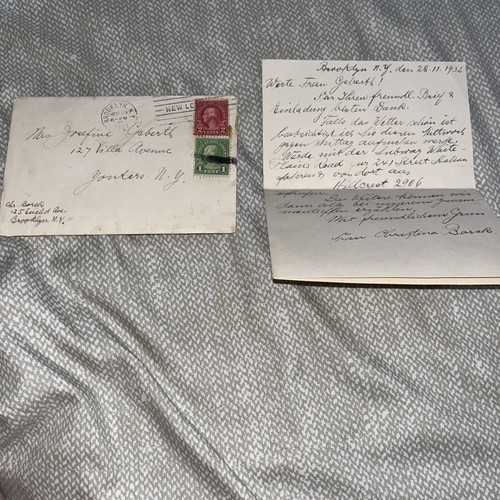 BROOKLYN, N.Y.
NOV
NEW
2 CENTS 2
1 CENT 1
Mrs Josefine Geberth
127 Villa Avenue
Yonkers N.Y.
Chr. Barck
125 Euclid Ave.
Brooklyn N.Y.
Brooklyn N.Y. den 28.11.1932
Werte Frau Geberth!
Für Ihren freundl. Brief &
Einladung besten Dank.
Falls das Wetter schön ist
beabsichtige ich Sie diesen Mittwoch
gegen Mittag aufsuchen werde.
Würde mit der Subway White
Plains Road 241 Street Station
fahren & von dort aus
Hillcrest 2906
anrufen.
Das Weitere können wir
dann alle bei unserem
mündlich
Mit freundlichem Gruss
Frau Christina Barck